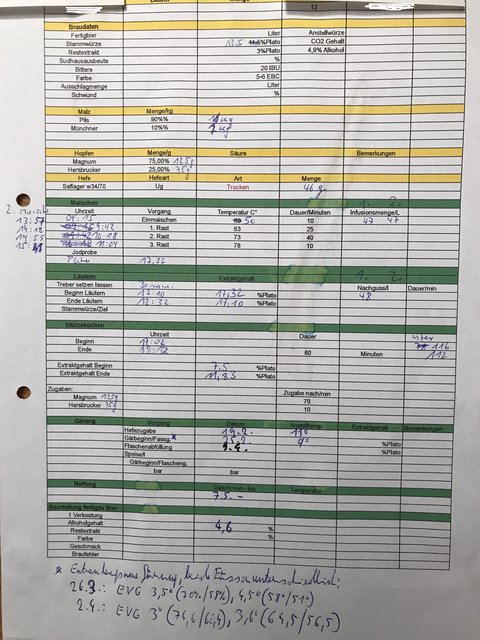 Datum Menge
12
Braudaten
Fertigbier Liter Anstellwürze
Stammwürze 12,5 11,6%Plato CO2 Gehalt
Restextrakt 3%Plato 4,9% Alkohol
Sudhausausbeute %
Bittere 20 IBU
Farbe 5-6 EBC
Ausschlagmenge Liter
Schwund %
Malz Menge/kg
Pils 90%% kg
Münchner 10%% kg
Hopfen Menge/g Säure Bemerkungen
Magnum 75,00% 125g
Hersbrucker 25,00% 75g
Hefe Hefeart Art Menge
Saflager w34/70 Ug Trocken 46 g
Maischen 1. 2.
2. Maische Uhrzeit Vorgang Temperatur C° Dauer/Minuten Infusionsmenge/L
13:57 09:15 Einmaischen 50 10 47 47
14:18 9:42 1. Rast 63 25
14:55 10:18 2. Rast 73 40
11:04 3. Rast 78 10
Jodprobe
17,32
Läutern Extraktgehalt 1. 2.
Treber setzen lassen 30 min Nachguss/l Dauer/min
Beginn Läutern 12:10 17,32 %Plato 48
Ende Läutern 12:32 17,10 %Plato
Stammwürze/Ziel
Würzekochen
Uhrzeit Dauer Liter
Beginn 17:02 116
Ende 18:12 80 Minuten 112
Extraktgehalt Beginn 7,5 %Plato
Extraktgehalt Ende 11,85 %Plato
Zugaben: Zugabe nach/min
Magnum 125g 70
Hersbrucker 75g 10
Gärung Vorgang Datum Anstelltemp. Extraktgehalt Bemerkungen
Hefezugabe 19.2. 11°
Gärbeginn/Fassg.* 25.2. 9° %Plato
Flaschenabfüllung %Plato
Speise/l
Gärbeginn/Flascheng.
bar bar
Reifung Datum von - bis Temperatur
7.5. -
Beurteilung fertiges Bier
1 Verkostung
Alkoholgehalt 4,6 %
Restextrakt %
Farbe %
Geschmack
Braufehler
* Extrem langsame Gärung, beide Fässer unterschiedlich:
26.3.: EVG 3,5° (70%/58%), 4,5° (58°/51°)
2.4.: EVG 3° (74,6/61,4), 3,6° (64,5/56,5)